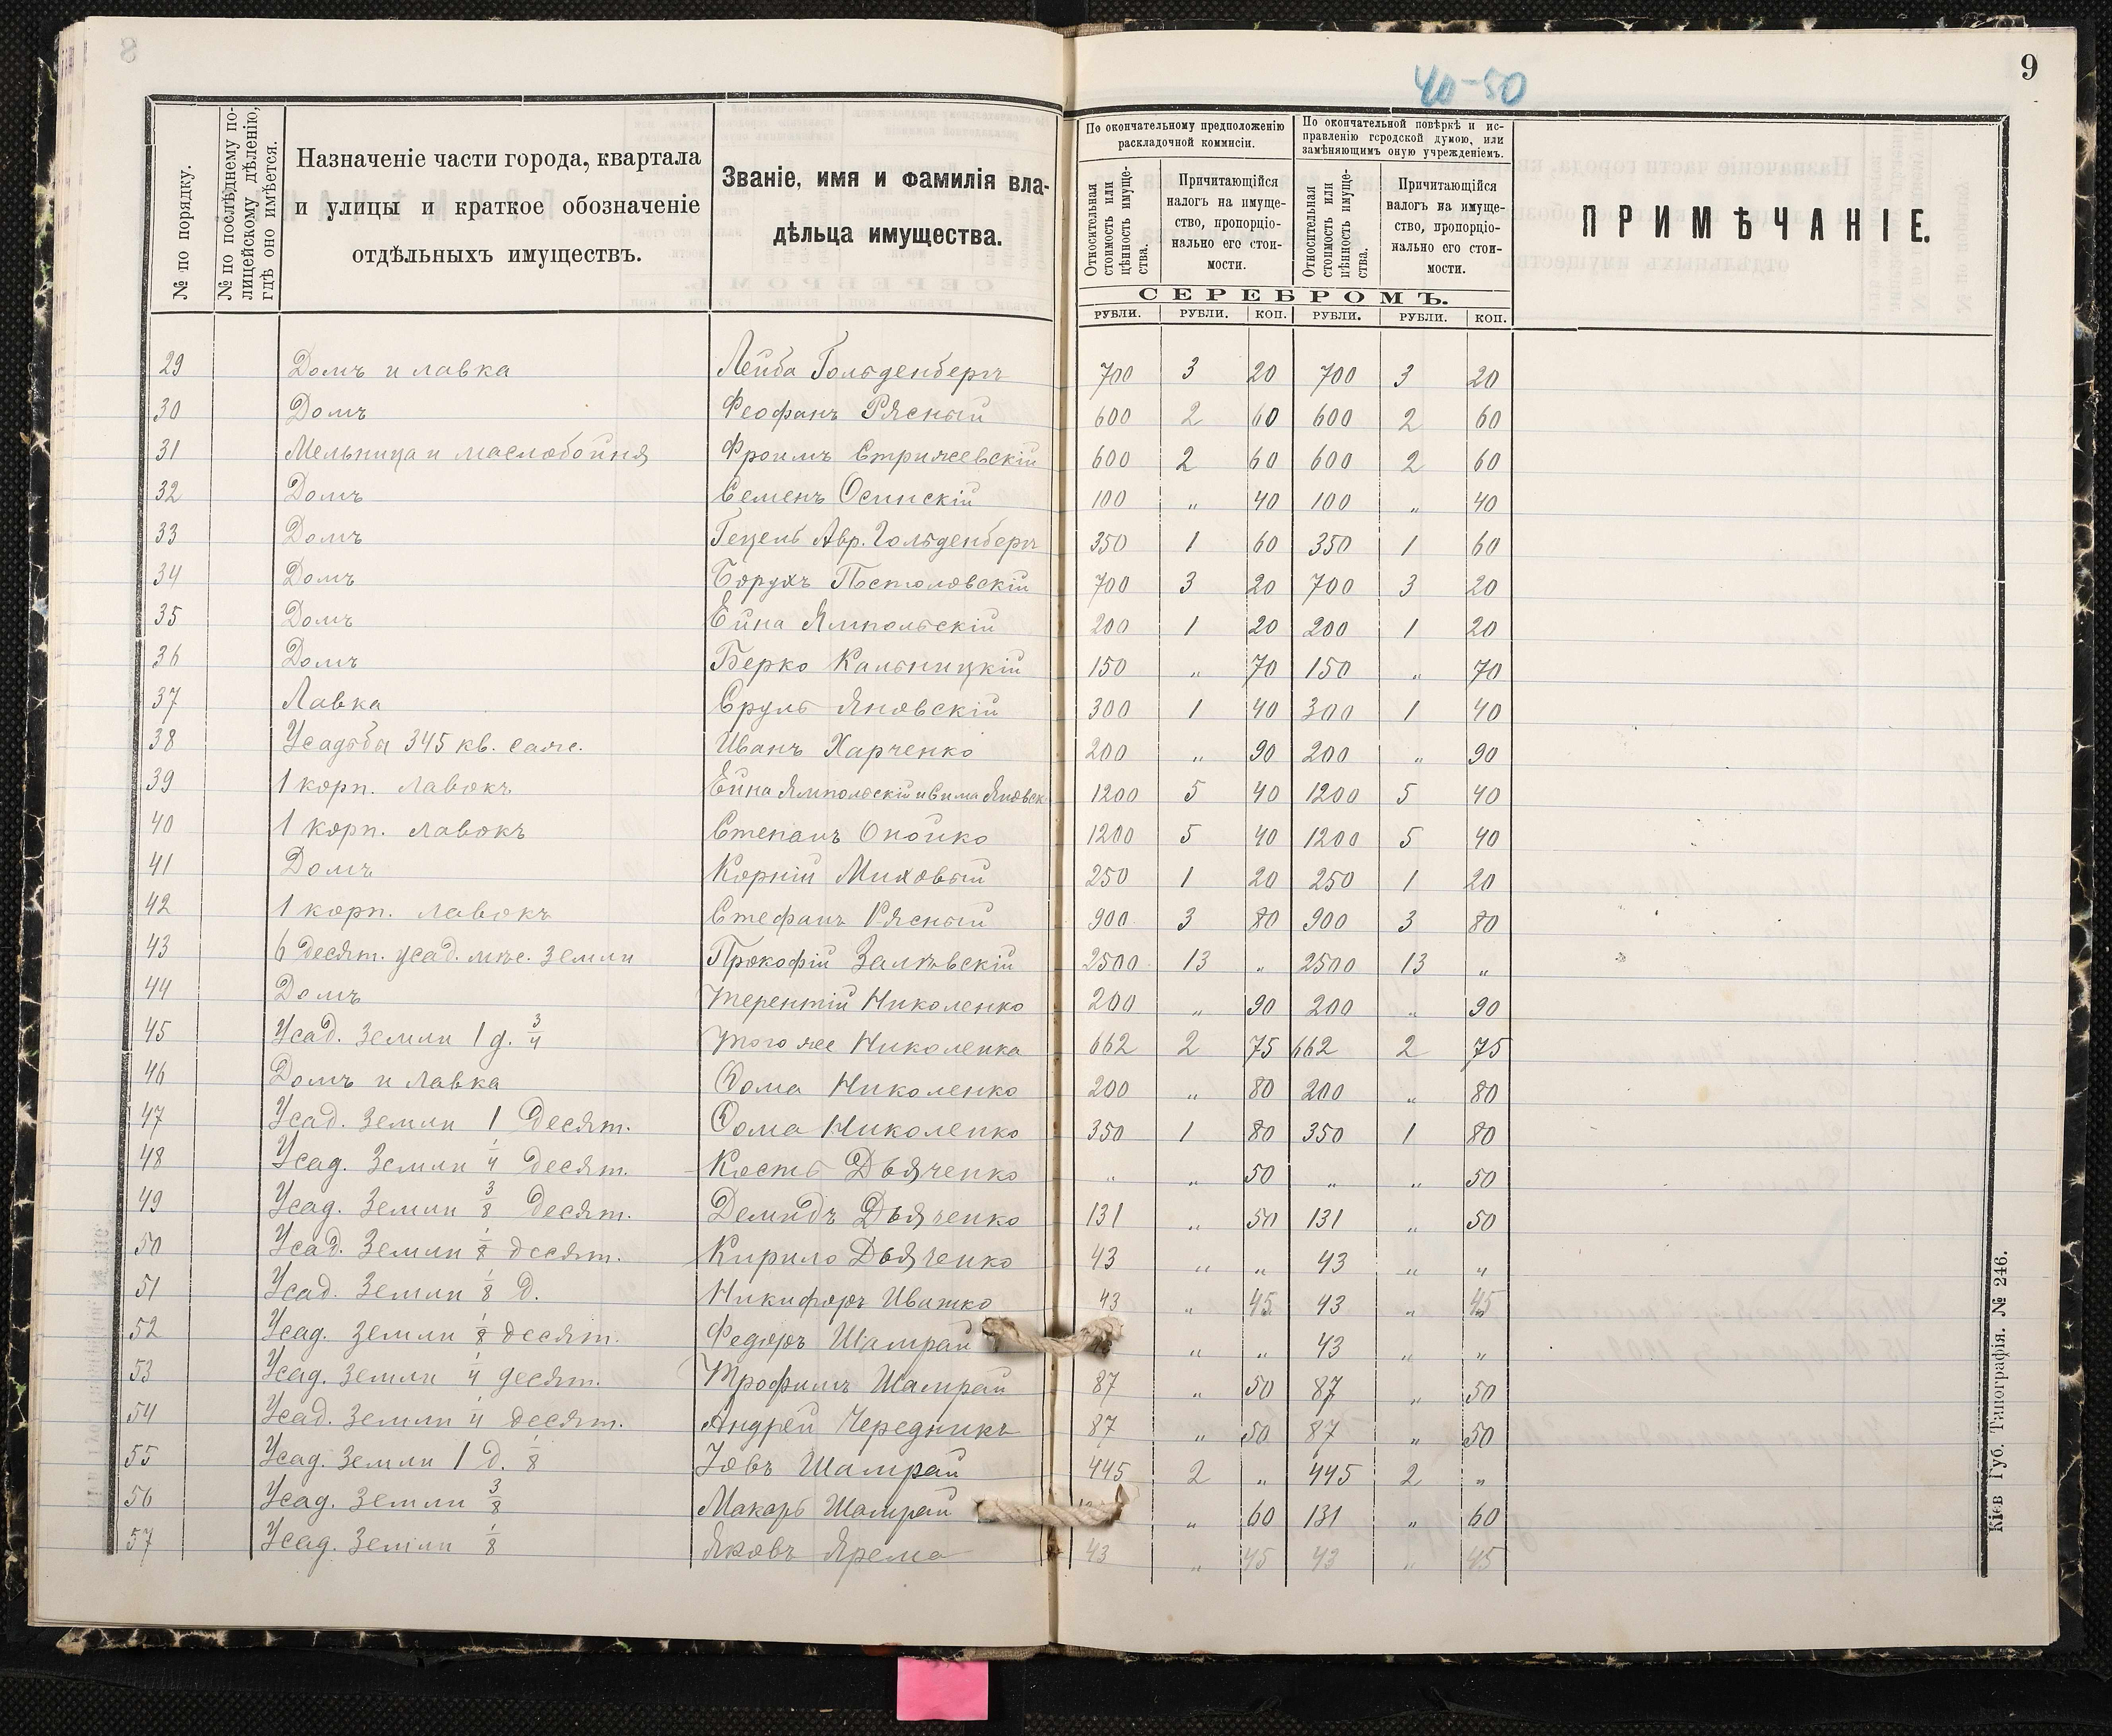 40-50
9
№ по порядку.
№ по послѣднему по-
лицейскому дѣленію,
гдѣ оно имѣется.
Назначеніе части города, квартала
и улицы и краткое обозначеніе
отдѣльныхъ имуществъ.
Званіе, имя и фамилія вла-
дѣльца имущества.
По окончательному предположенію
раскладочной коммисіи.
Относительная
стоимость или
цѣнность имуще-
ства.
Причитающійся
налогъ на имуще-
ство, пропорціо-
нально его стои-
мости.
По окончательной повѣркѣ и ис-
правленію городской думою, или
замѣняющимъ оную учрежденіемъ.
Относительная
стоимость или
цѣнность имуще-
ства.
Причитающійся
налогъ на имуще-
ство, пропорціо-
нально его стои-
мости.
СЕРЕБРОМЪ.
РУБЛИ. РУБЛИ. КОП. РУБЛИ. РУБЛИ. КОП.
ПРИМѢЧАНІЕ.
29 Домъ и лавка Лейба Гольденбергъ 700 3 20 700 3 20
30 Домъ Феофанъ Рясный 600 2 60 600 2 60
31 Мельница и маслобойня Фроимъ Стрижевскій 600 2 60 600 2 60
32 Домъ Семенъ Осинскій 100 " 40 100 " 40
33 Домъ Гецель Авр. Гольденбергъ 350 1 60 350 1 60
34 Домъ Борухъ Постоловскій 700 3 20 700 3 20
35 Домъ Ейна Ямпольскій 200 1 20 200 1 20
36 Домъ Берко Кальницкій 150 " 70 150 " 70
37 Лавка Сруль Яновскій 300 1 40 300 1 40
38 Усадьба 345 кв. саж. Иванъ Харченко 200 " 90 200 " 90
39 1 корп. лавокъ Ейна Ямпольскій и Сима Яновск 1200 5 40 1200 5 40
40 1 корп. лавокъ Степанъ Опойко 1200 5 40 1200 5 40
41 Домъ Корній Миховый 250 1 20 250 1 20
42 1 корп. лавокъ Стефанъ Рясный 900 3 80 900 3 80
43 6 десят. усад. земли Прокофій Залѣвскій 2500 13 " 2500 13 "
44 Домъ Терентій Николенко 200 " 90 200 " 90
45 Усад. земли 1 д. 3/4 Того же Николенка 662 2 75 662 2 75
46 Домъ и лавка Ѳома Николенко 200 " 80 200 " 80
47 Усад. земли 1 десят. Ѳома Николенко 350 1 80 350 1 80
48 Усад. земли 1/4 десят. Кость Дьяченко " " 50 " " 50
49 Усад. земли 3/8 десят. Демидъ Дьяченко 131 " 50 131 " 50
50 Усад. земли 1/8 десят. Кирило Дьяченко 43 " " 43 " "
51 Усад. земли 1/8 д. Никифоръ Ивашко 43 " 45 43 " 45
52 Усад. земли 1/8 десят. Федоръ Шамрай " " 43 " "
53 Усад. земли 1/4 десят. Трофимъ Шамрай 87 " 50 87 " 50
54 Усад. земли 1/4 десят. Андрей Чередникъ 87 " 50 87 " 50
55 Усад. земли 1 д. 1/8 Іовъ Шамрай 445 2 " 445 2 "
56 Усад. земли 3/8 Макаръ Шамрай " 60 131 " 60
57 Усад. земли 1/8 Яковъ Ярема 43 " 45 43 " 45
Кіев Губ. Типографія. № 246.